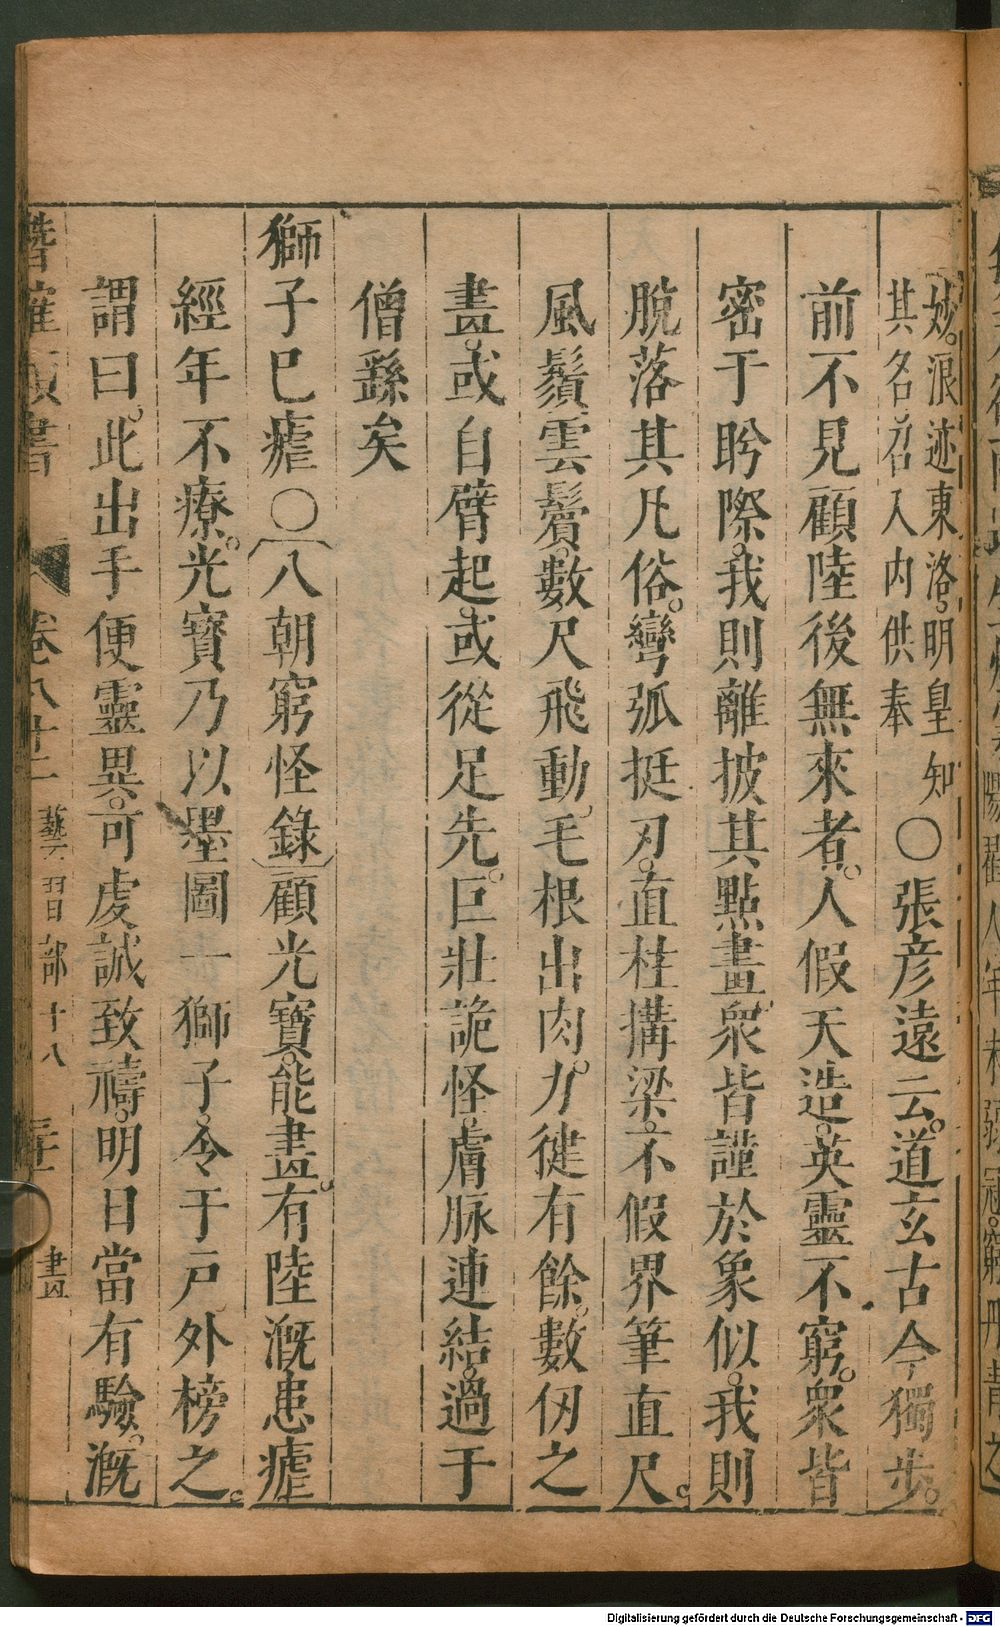 妙浪迹東洛明皇知
其名召入内供奉
○張彦遠云道玄古今獨步
前不見顧陸後無來者人假天造英靈不窮衆皆
密于盻際我則離披其點畫衆皆謹於象似我則
脫落其凡俗彎弧挺刃直柱搆梁不假界筆直尺
風鬚雲鬢數尺飛動毛根出肉力徤有餘數仞之
畫或自臂起或從足先巨壯詭怪膚脉連結過于
僧繇矣
獅子巳瘧○八朝窮怪錄顧光寶能畫有陸溉患瘧
經年不療光寳乃以墨圖一獅子令于戸外榜之
謂曰此出手便靈異可虔誠致禱明日當有驗溉
潛確類書 卷八十二 藝習部十八 畫
Digitalisierung gefördert durch die Deutsche Forschungsgemeinschaft - DFG